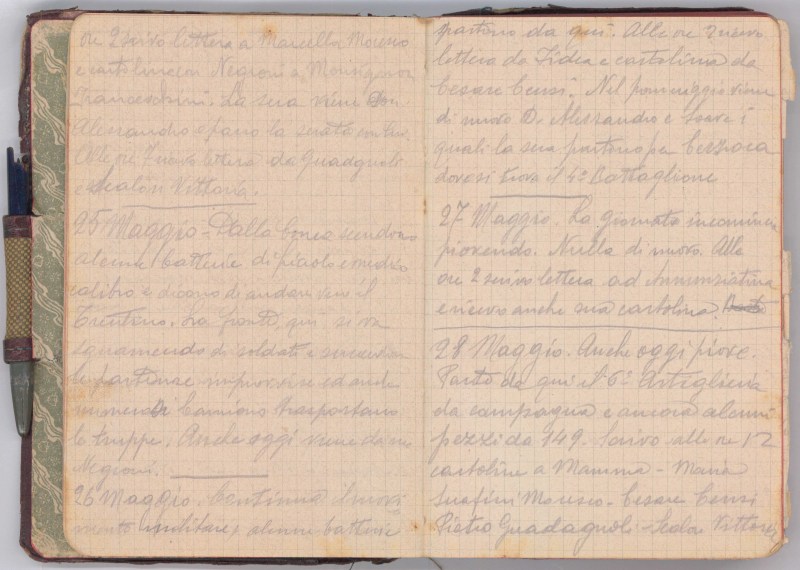 ore 2 scrivo lettera a Marcella Moresco
e cartolina con Negroni a Monsignor
Franceschini. La sera viene Don
Alessandro e passo la serata con lui.
Alle ore 7 ricevo lettera da Guadagnoli
e Scalon Vittoria.
25 Maggio - Dalla conca scendono
alcune batterie di piccolo e medio
calibro e dicono di andare verso il
Trentino. Ora qui si va
di soldati e
le partenze improvvise ed anche
numerosi Camions trasportano
le truppe. Anche oggi viene da me
Negroni.
26 Maggio. Continua il movi
mento militare, alcune batterie
partono da qui. Alle ore 2 ricevo
lettera da Fidea e cartolina da
Cesare Censi. Nel pomeriggio viene
di nuovo D. Alessandro e Soave i
quali la sera partono per Bezzeca
dove si trova il 4° Battaglione
27 Maggio. La giornata incomincia
piovendo. Nulla di nuovo. Alle
ore 2 scrivo lettera ad Annunziatina
e ricevo anche sua cartolina.
28 Maggio. Anche oggi piove.
Parte da qui il 6° Artiglieria
da campagna e ancora alcuni
pezzi da 149. Scrivo alle ore 12
cartoline a Mamma - Maria
Serafini Moresco - Cesare Censi
Pietro Guadagnoli - Scalon Vittoria